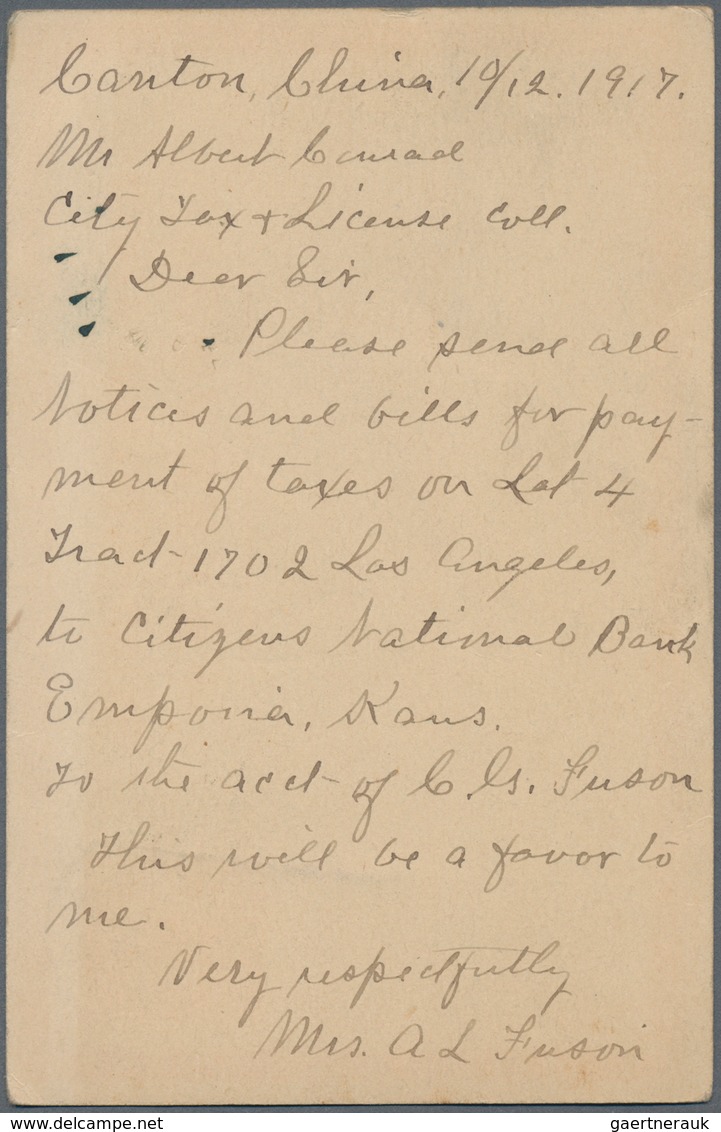 Canton, China, 10/12. 1917.
Mr Albert Conrad
City Tax & License Coll.
Dear Sir,
Please send all
Notices and bills for pay-
ment of taxes on Lot 4
Tract 1702 Los Angeles,
to Citizens National Bank
Emporia, Kans.
To the acct of C. G. Fuson
This will be a favor to
me.
Very respectfully
Mrs. A L Fuson
gaertnerauk